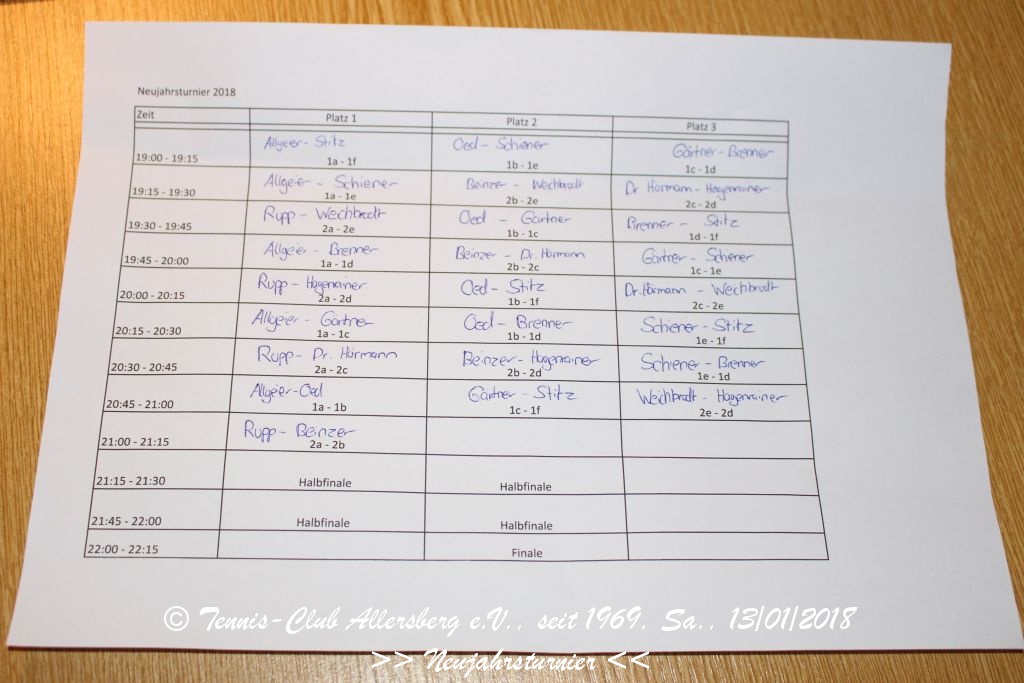 Neujahrsturnier 2018
Zeit Platz 1 Platz 2 Platz 3
Allgeier - Stitz Oed - Schiener Gärtner - Brenner
19:00 - 19:15 1a - 1f 1b - 1e 1c - 1d
Allgeier - Schiener Beinzer - Weichbrodt Dr. Hörmann - Hagenrainer
19:15 - 19:30 1a - 1e 2b - 2e 2c - 2d
Rupp - Weichbrodt Oed - Gärtner Brenner - Stitz
19:30 - 19:45 2a - 2e 1b - 1c 1d - 1f
Allgeier - Brenner Beinzer - Dr. Hörmann Gärtner - Schiener
19:45 - 20:00 1a - 1d 2b - 2c 1c - 1e
Rupp - Hagenrainer Oed - Stitz Dr. Hörmann - Weichbrodt
20:00 - 20:15 2a - 2d 1b - 1f 2c - 2e
Allgeier - Gärtner Oed - Brenner Schiener - Stitz
20:15 - 20:30 1a - 1c 1b - 1d 1e - 1f
Rupp - Dr. Hörmann Beinzer - Hagenrainer Schiener - Brenner
20:30 - 20:45 2a - 2c 2b - 2d 1e - 1d
Allgeier - Oed Gärtner - Stitz Weichbrodt - Hagenrainer
20:45 - 21:00 1a - 1b 1c - 1f 2e - 2d
Rupp - Beinzer
21:00 - 21:15 2a - 2b
21:15 - 21:30 Halbfinale Halbfinale
21:45 - 22:00 Halbfinale Halbfinale
22:00 - 22:15 Finale
© Tennis-Club Allersberg e.V., seit 1969, Sa., 13/01/2018
>> Neujahrsturnier <<